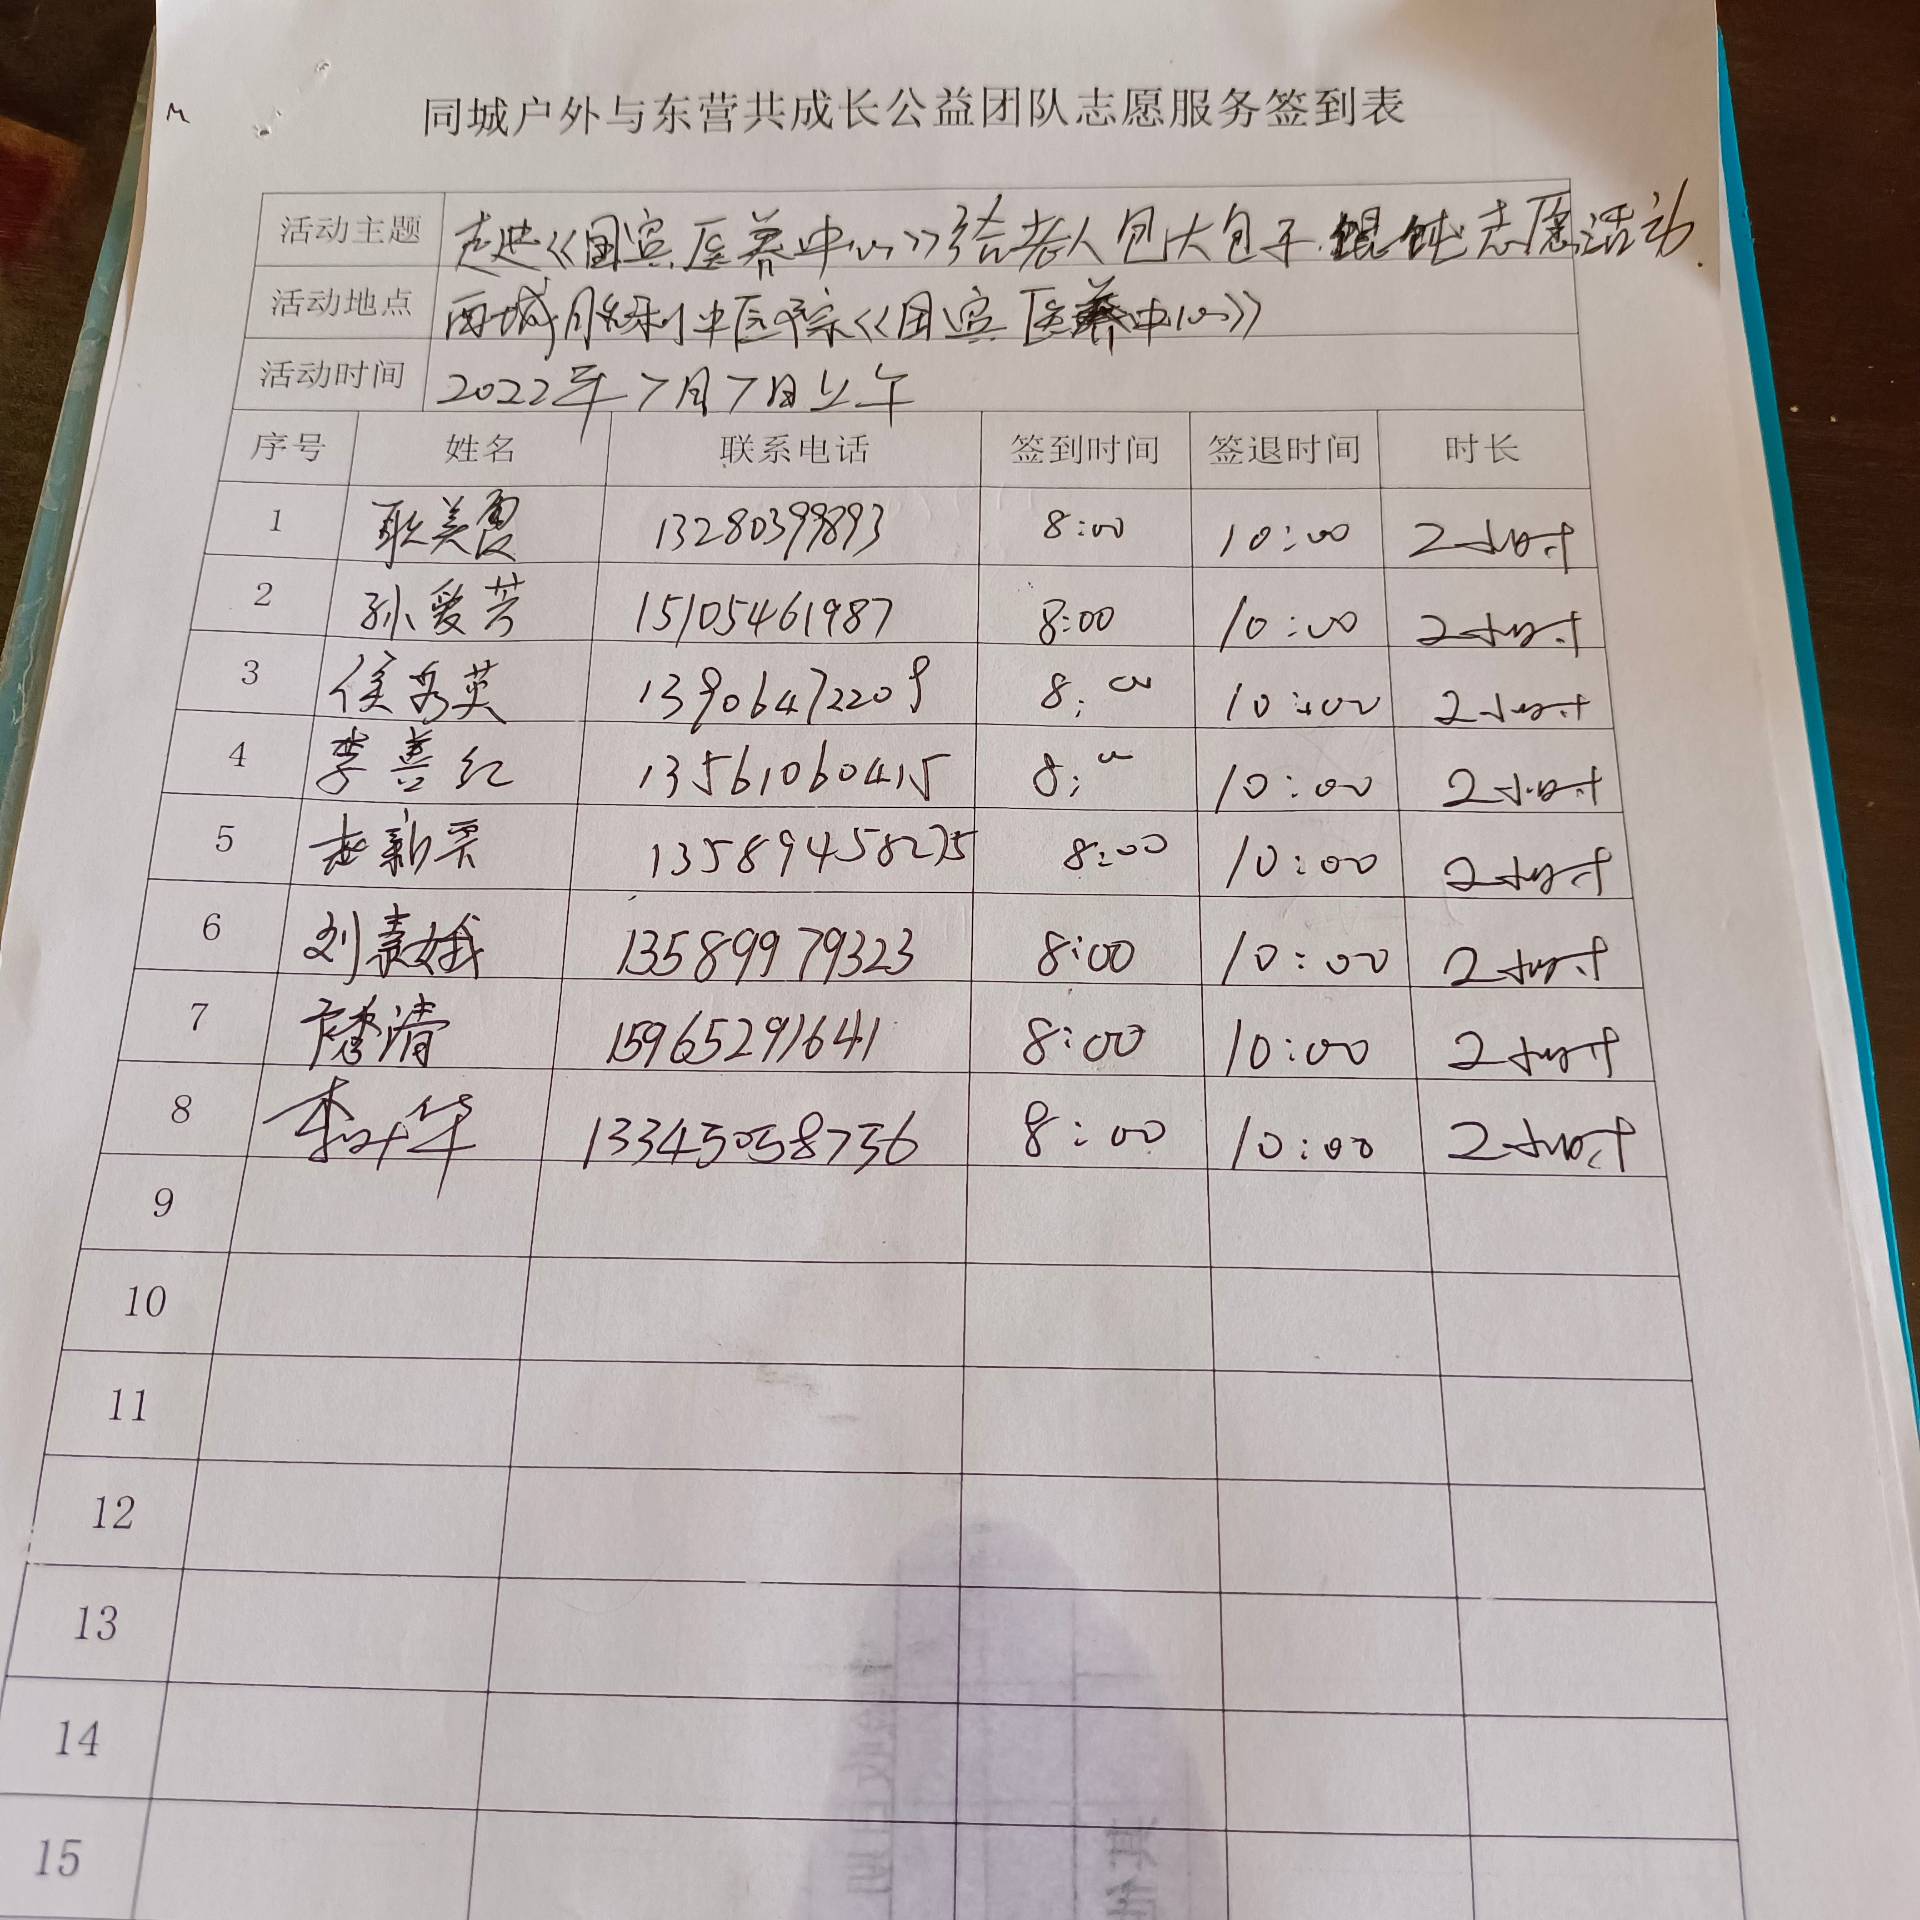 同城户外与东营共成长公益团队志愿服务签到表
活动主题 走进《国宾医养中心》给老人包大包子.馄饨志愿活动.
活动地点 西城胜利中医院《国宾医养中心》
活动时间 2022年7月7日上午
序号 姓名 联系电话 签到时间 签退时间 时长
1 耿美霞 13280399893 8:00 10:00 2小时
2 孙爱芳 15105461987 8:00 10:00 2小时
3 侯秀英 13906472209 8:00 10:00 2小时
4 李善红 13561060415 8:00 10:00 2小时
5 赵新 13589458275 8:00 10:00 2小时
6 刘娥 13589979323 8:00 10:00 2小时
7 清 15965291641 8:00 10:00 2小时
8 李华 13345058756 8:00 10:00 2小时
9
10
11
12
13
14
15